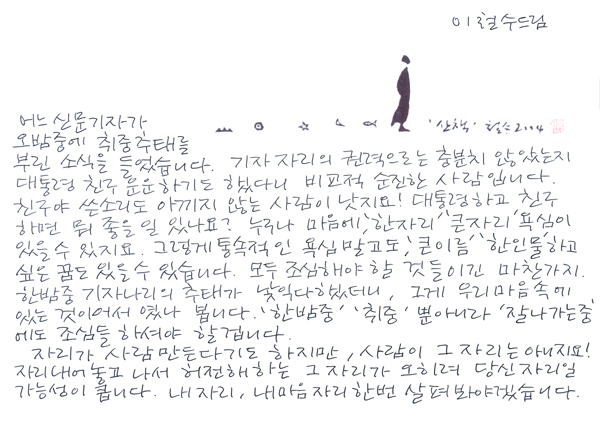 이철수드림
어느 신문기자가
'산책' 철수 2004
오밤중에 취중추태를
부린 소식을 들었습니다. 기자 자리의 권력으로는 충분치 않았는지
대통령 친구 운운하기도 했다니 비교적 순진한 사람입니다.
친구야 쓴소리도 아끼지 않는 사람이 낫지요! 대통령하고 친구
하면 뭐 좋을 일 있나요? 누구나 마음에 '한자리' '큰자리' 욕심이
있을 수 있지요. 그렇게 통속적인 욕심 말고도, '큰이름' '한인물' 하고
싶은 꿈도 있을 수 있습니다. 모두 조심해야 할 것들이긴 마찬가지.
한밤중 기자나리의 추태가 낯익다 했더니, 그게 우리 마음속에
있는 것이어서 였나 봅니다. '한밤중' '취중' 뿐아니라 '잘나가는중'
에도 조심들 하셔야 할겁니다.
자리가 사람만든다기도 하지만, 사람이 그 자리는 아니지요!
자리 내어놓고 나서 허전해하는 그 자리가 오히려 당신 자리일
가능성이 큽니다. 내 자리, 내마음자리 한번 살펴봐야겠습니다.